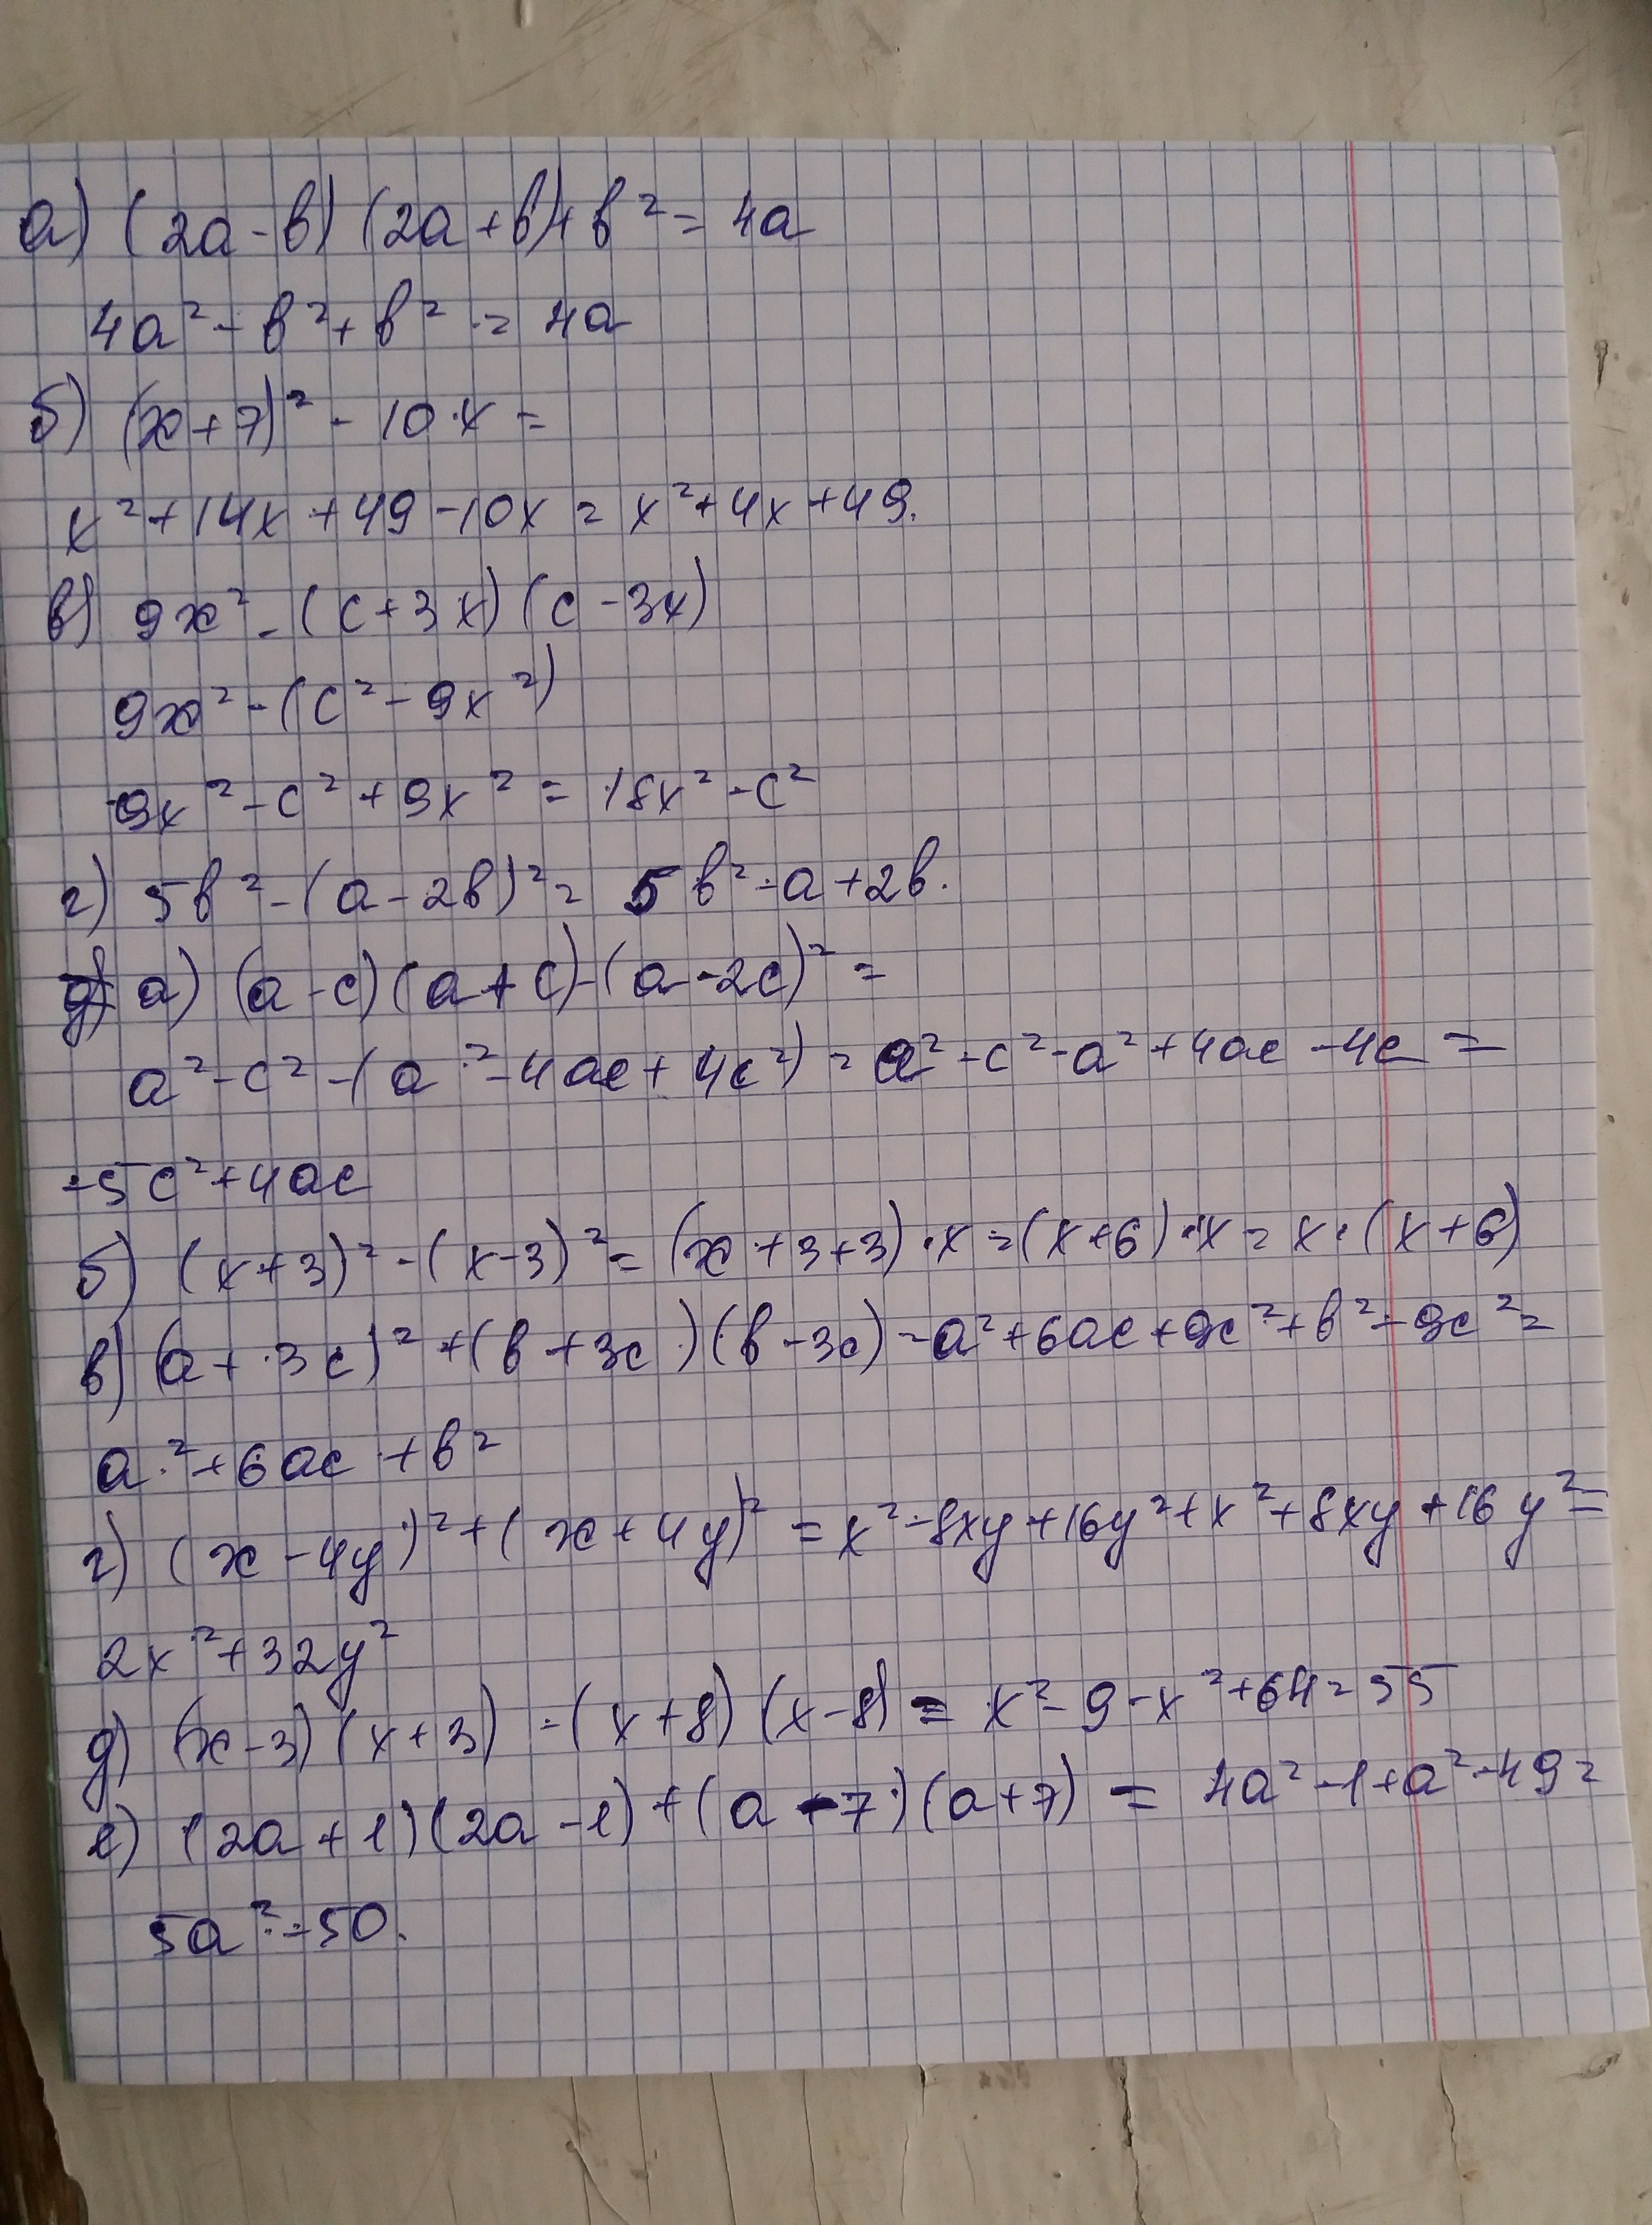 а) (2a-b) (2a+b)+b² = 4a
4a² - b² + b² = 4a
б) (x+7)² - 10·x =
x² + 14x + 49 - 10x = x² + 4x + 49.
в) 9x² - (c+3x) (c-3x)
9x² - (c² - 9x²)
9x² - c² + 9x² = 18x² - c²
г) 5b² - (a-2b)² = 5b² - a + 2b.
а) (a-c) (a+c) - (a-2c)² =
a² - c² - (a² - 4ac + 4c²) = a² - c² - a² + 4ac - 4c =
-5c² + 4ac
б) (x+3)² - (x-3)² = (x+3+3)·x = (x+6)·x = x·(x+6)
в) (a+3c)² + (b+3c) (b-3c) - a² + 6ac + 9c² + b² - 9c² =
a² + 6ac + b²
г) (x-4y)² + (x+4y)² = x² - 8xy + 16y² + x² + 8xy + 16y² =
2x² + 32y²
д) (x-3) (x+3) - (x+8) (x-8) = x² - 9 - x² + 64 = 55
е) (2a+1) (2a-1) + (a-7) (a+7) = 4a² - 1 + a² - 49 =
5a² - 50.